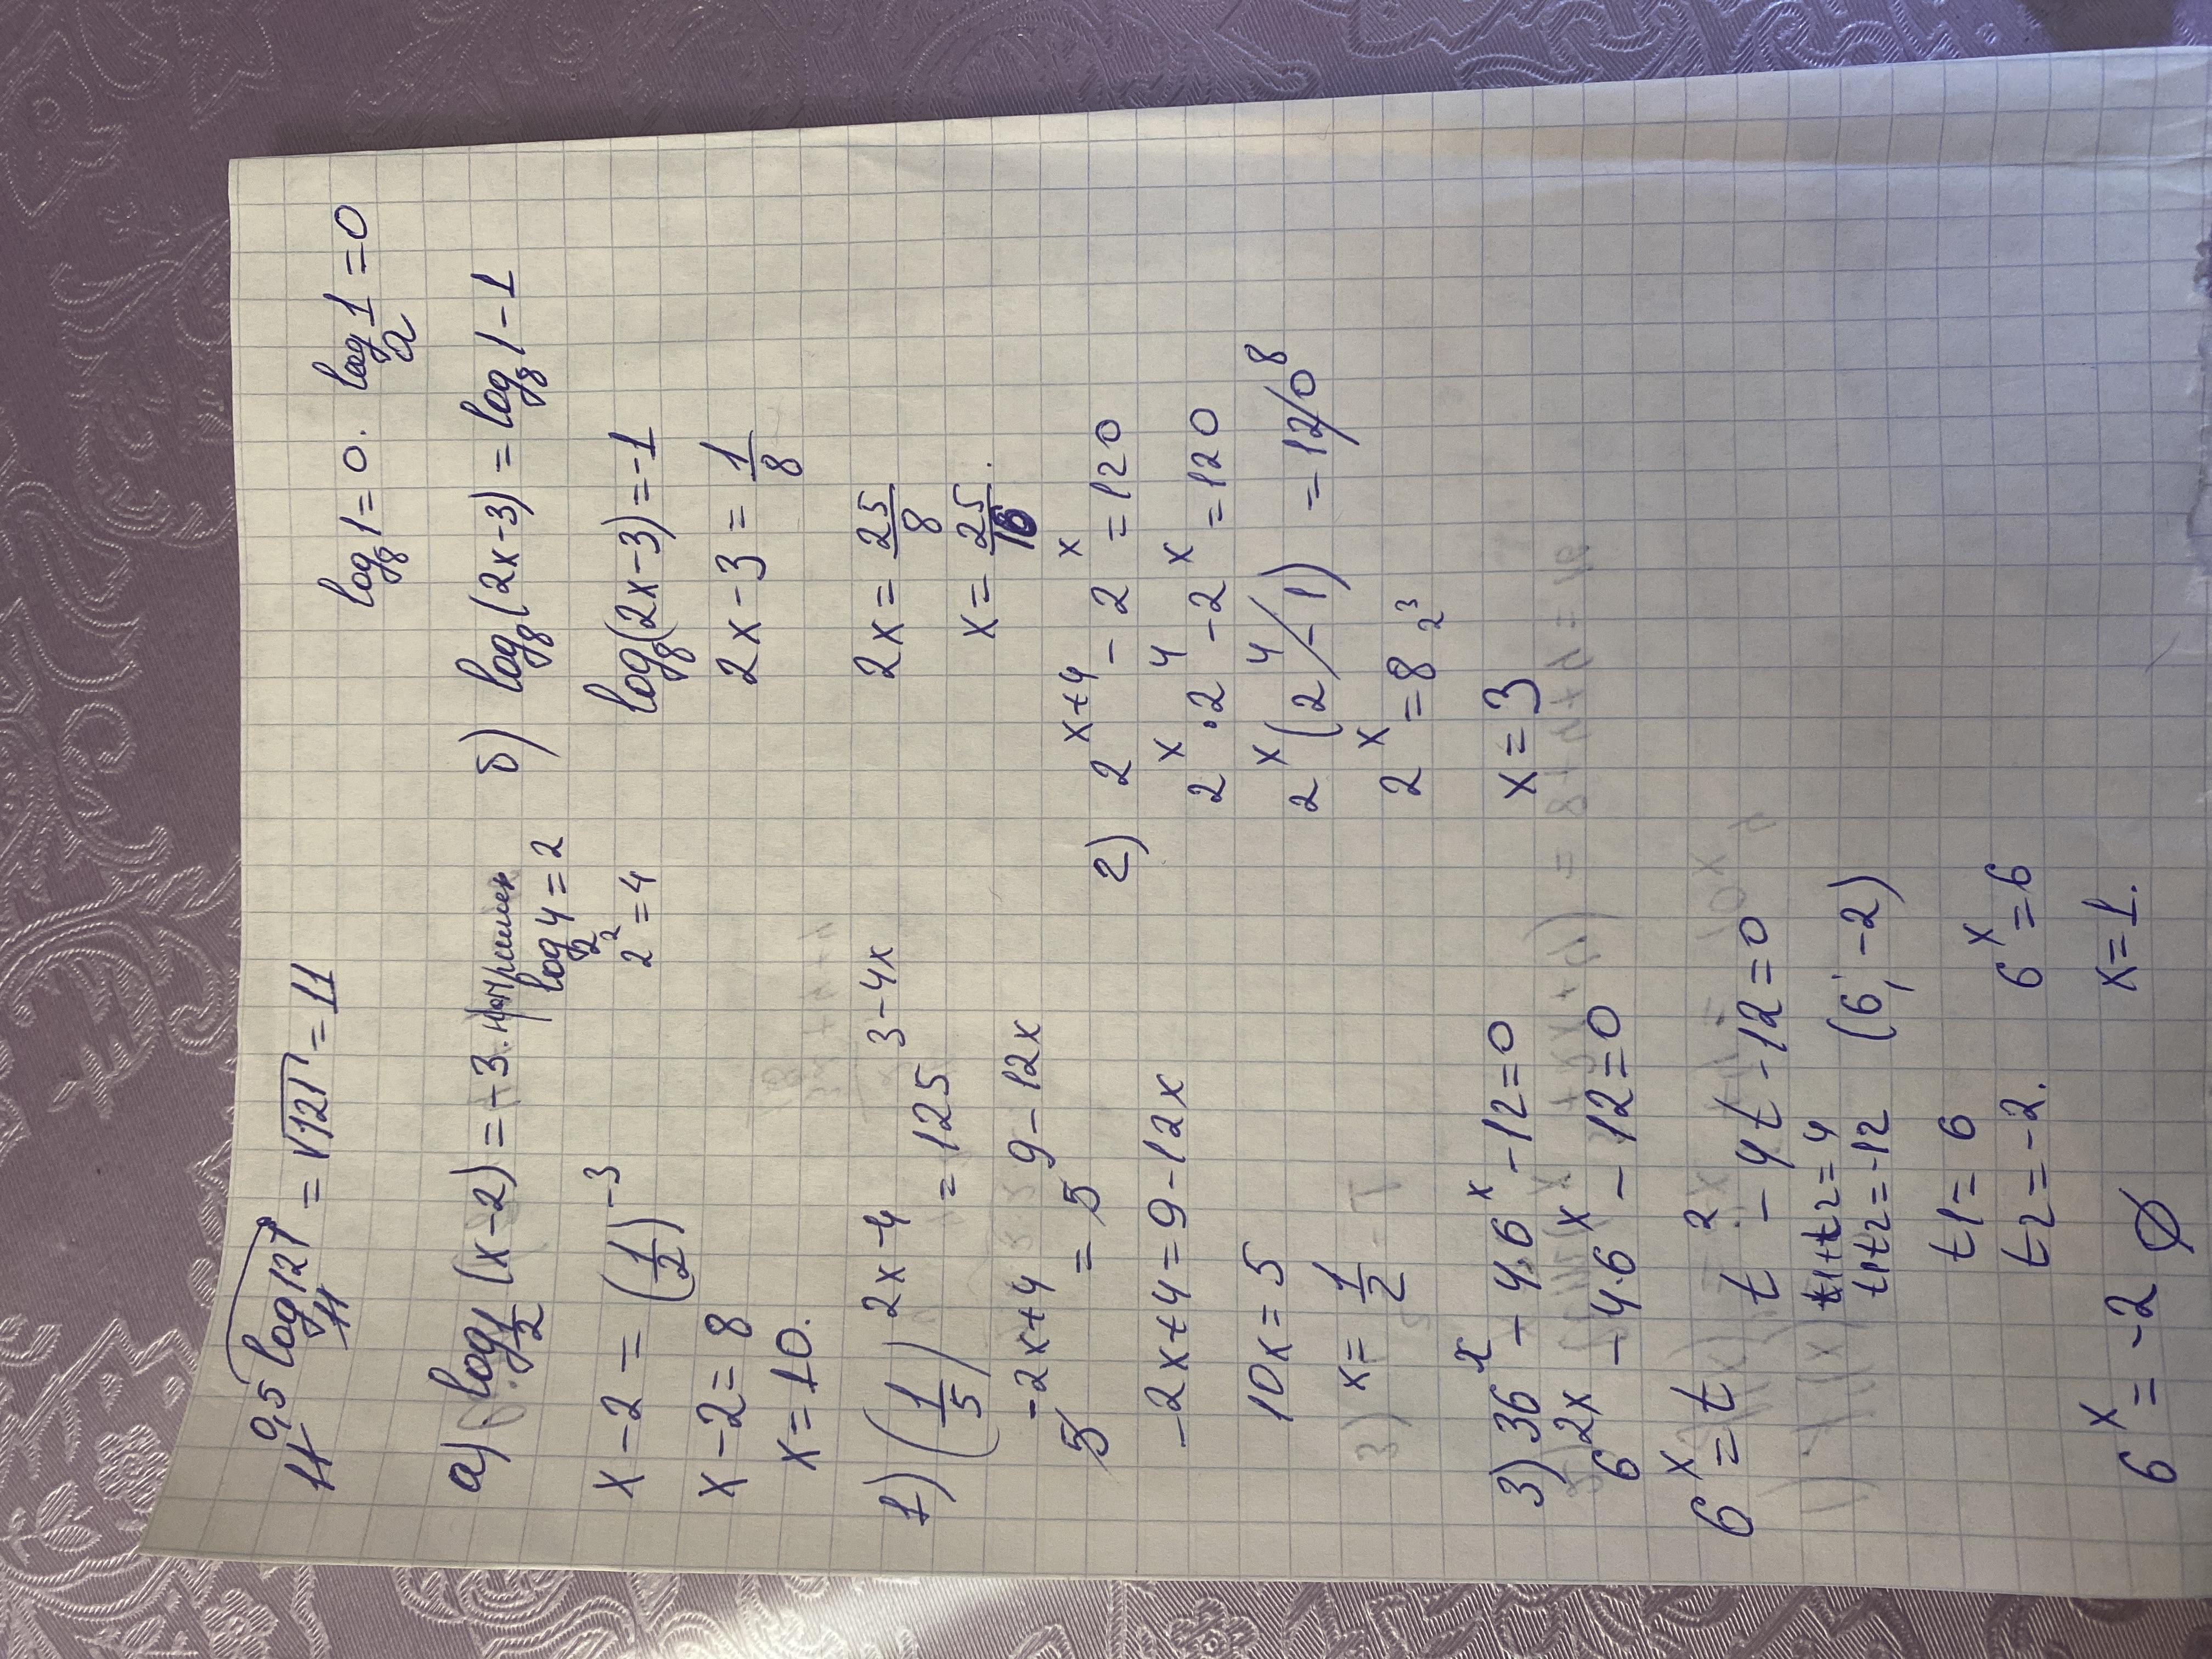 11^0,5 log_11 121 = √121 = 11
log_8 1 = 0. log_a 1 = 0
а) log_1/2 (x-2) = -3. например
log_2 4 = 2
2^2 = 4
x-2 = (1/2)^-3
x-2 = 8
x = 10.
б) log_8 (2x-3) = log_8 1 - 1
log_8 (2x-3) = -1
2x-3 = 1/8
2x = 25/8
x = 25/16.
1) (1/5)^2x-4 = 125^3-4x
5^-2x+4 = 5^9-12x
-2x+4 = 9-12x
10x = 5
x = 1/2
2) 2^x+4 - 2^x = 120
2^x · 2^4 - 2^x = 120
2^x (2^4 - 1) = 120 8
2^x = 8 2^3
x = 3
3) 36^x - 4·6^x - 12 = 0
6^2x - 4·6^x - 12 = 0
6^x = t t^2 - 4t - 12 = 0
t1+t2 = 4
t1t2 = -12 (6; -2)
t1 = 6
t2 = -2.
6^x = 6
6^x = -2 ∅
x = 1.